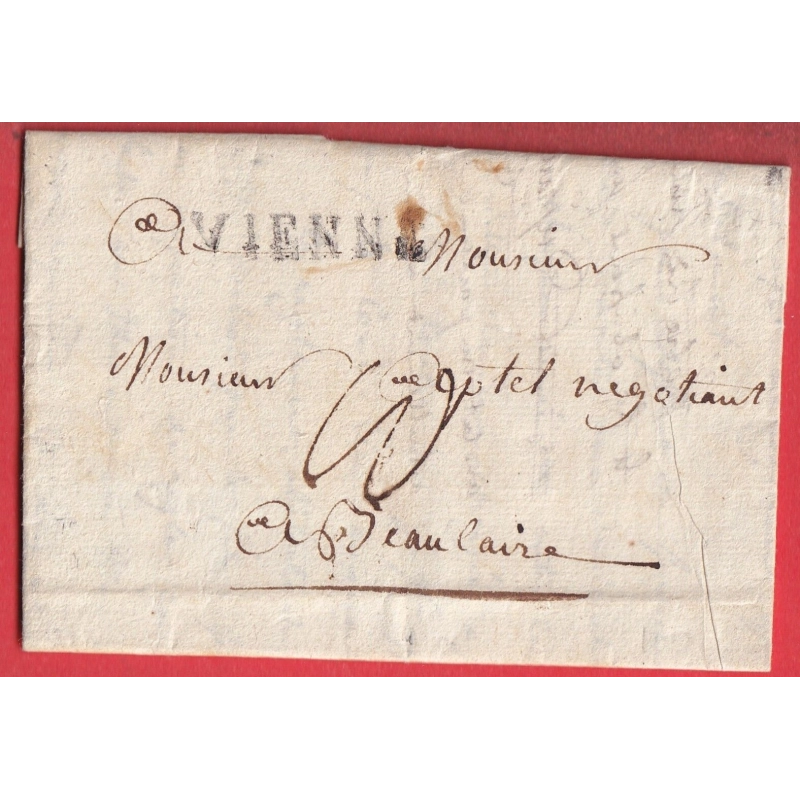 A VIENNE Monsieur
Monsieur Aptel negotiant
A Beaulaire